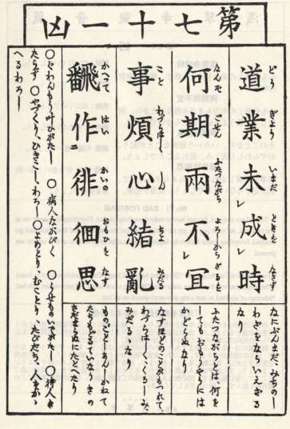 第七十一凶
道業未成時
どう ぎよう いまだ ときを なさず
なにぶんまだ、みちの
わざをならいえざる
なり
何期兩不冝
なんぞ ごせん ふたつながら よろしからざるを
ふたつながらとは、何を
してもおもうやうには
かどらぬなり
事煩心緒亂
こと わづらはしく しん ちよ みだる
なすほどのことがもつれて、
わづらはしく、くるしみ、
みだるゝなり
飜作徘徊思
かへつて はい かいの おもひを なす
ものごとしあんしかねて
たちもどるていなりきの
さだまらぬにたとへたり
○ぐわんもう叶ひがたし ○病人ながびく ○うせものいでがたし ○待人き
たらず ○やづくり、ひきこしわろし ○よめとり、むことり、たびだち、人をかゝ
へるわろし